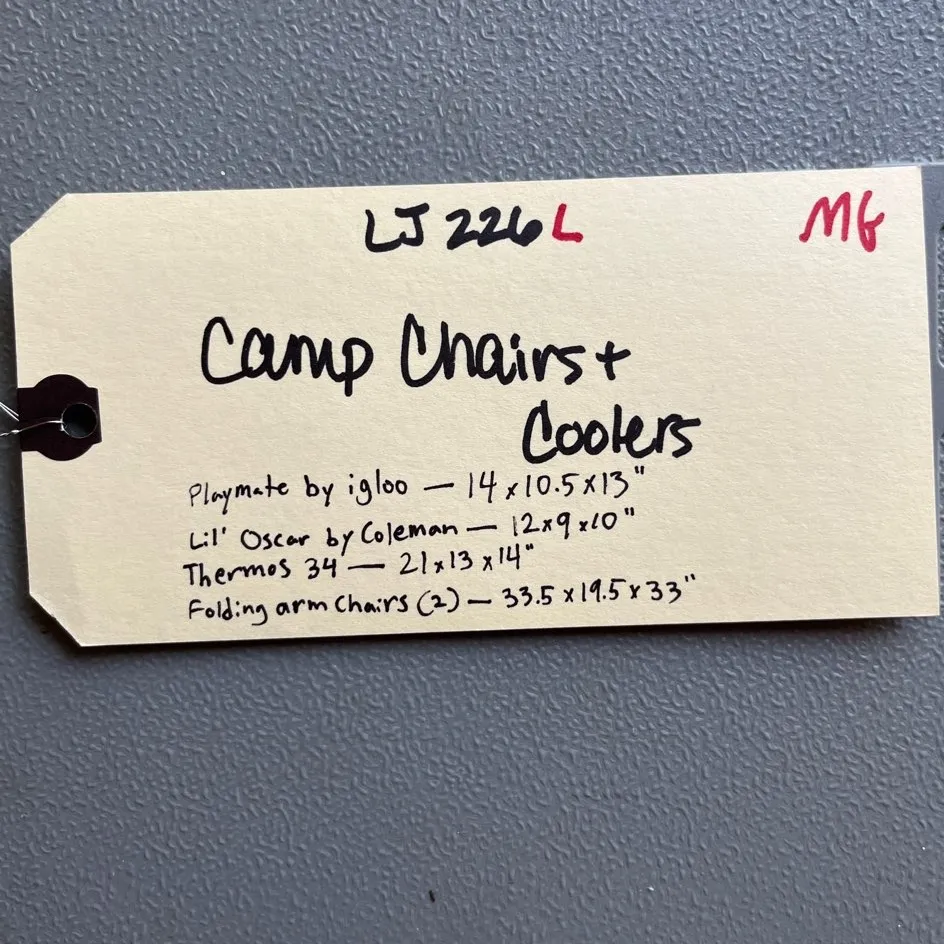 LJ226L MG
Camp Chairs +
Coolers
Playmate by igloo — 14 x 10.5 x 13"
Lil' Oscar by Coleman — 12 x 9 x 10"
Thermos 34 — 21 x 13 x 14"
Folding arm Chairs (2) — 33.5 x 19.5 x 33"